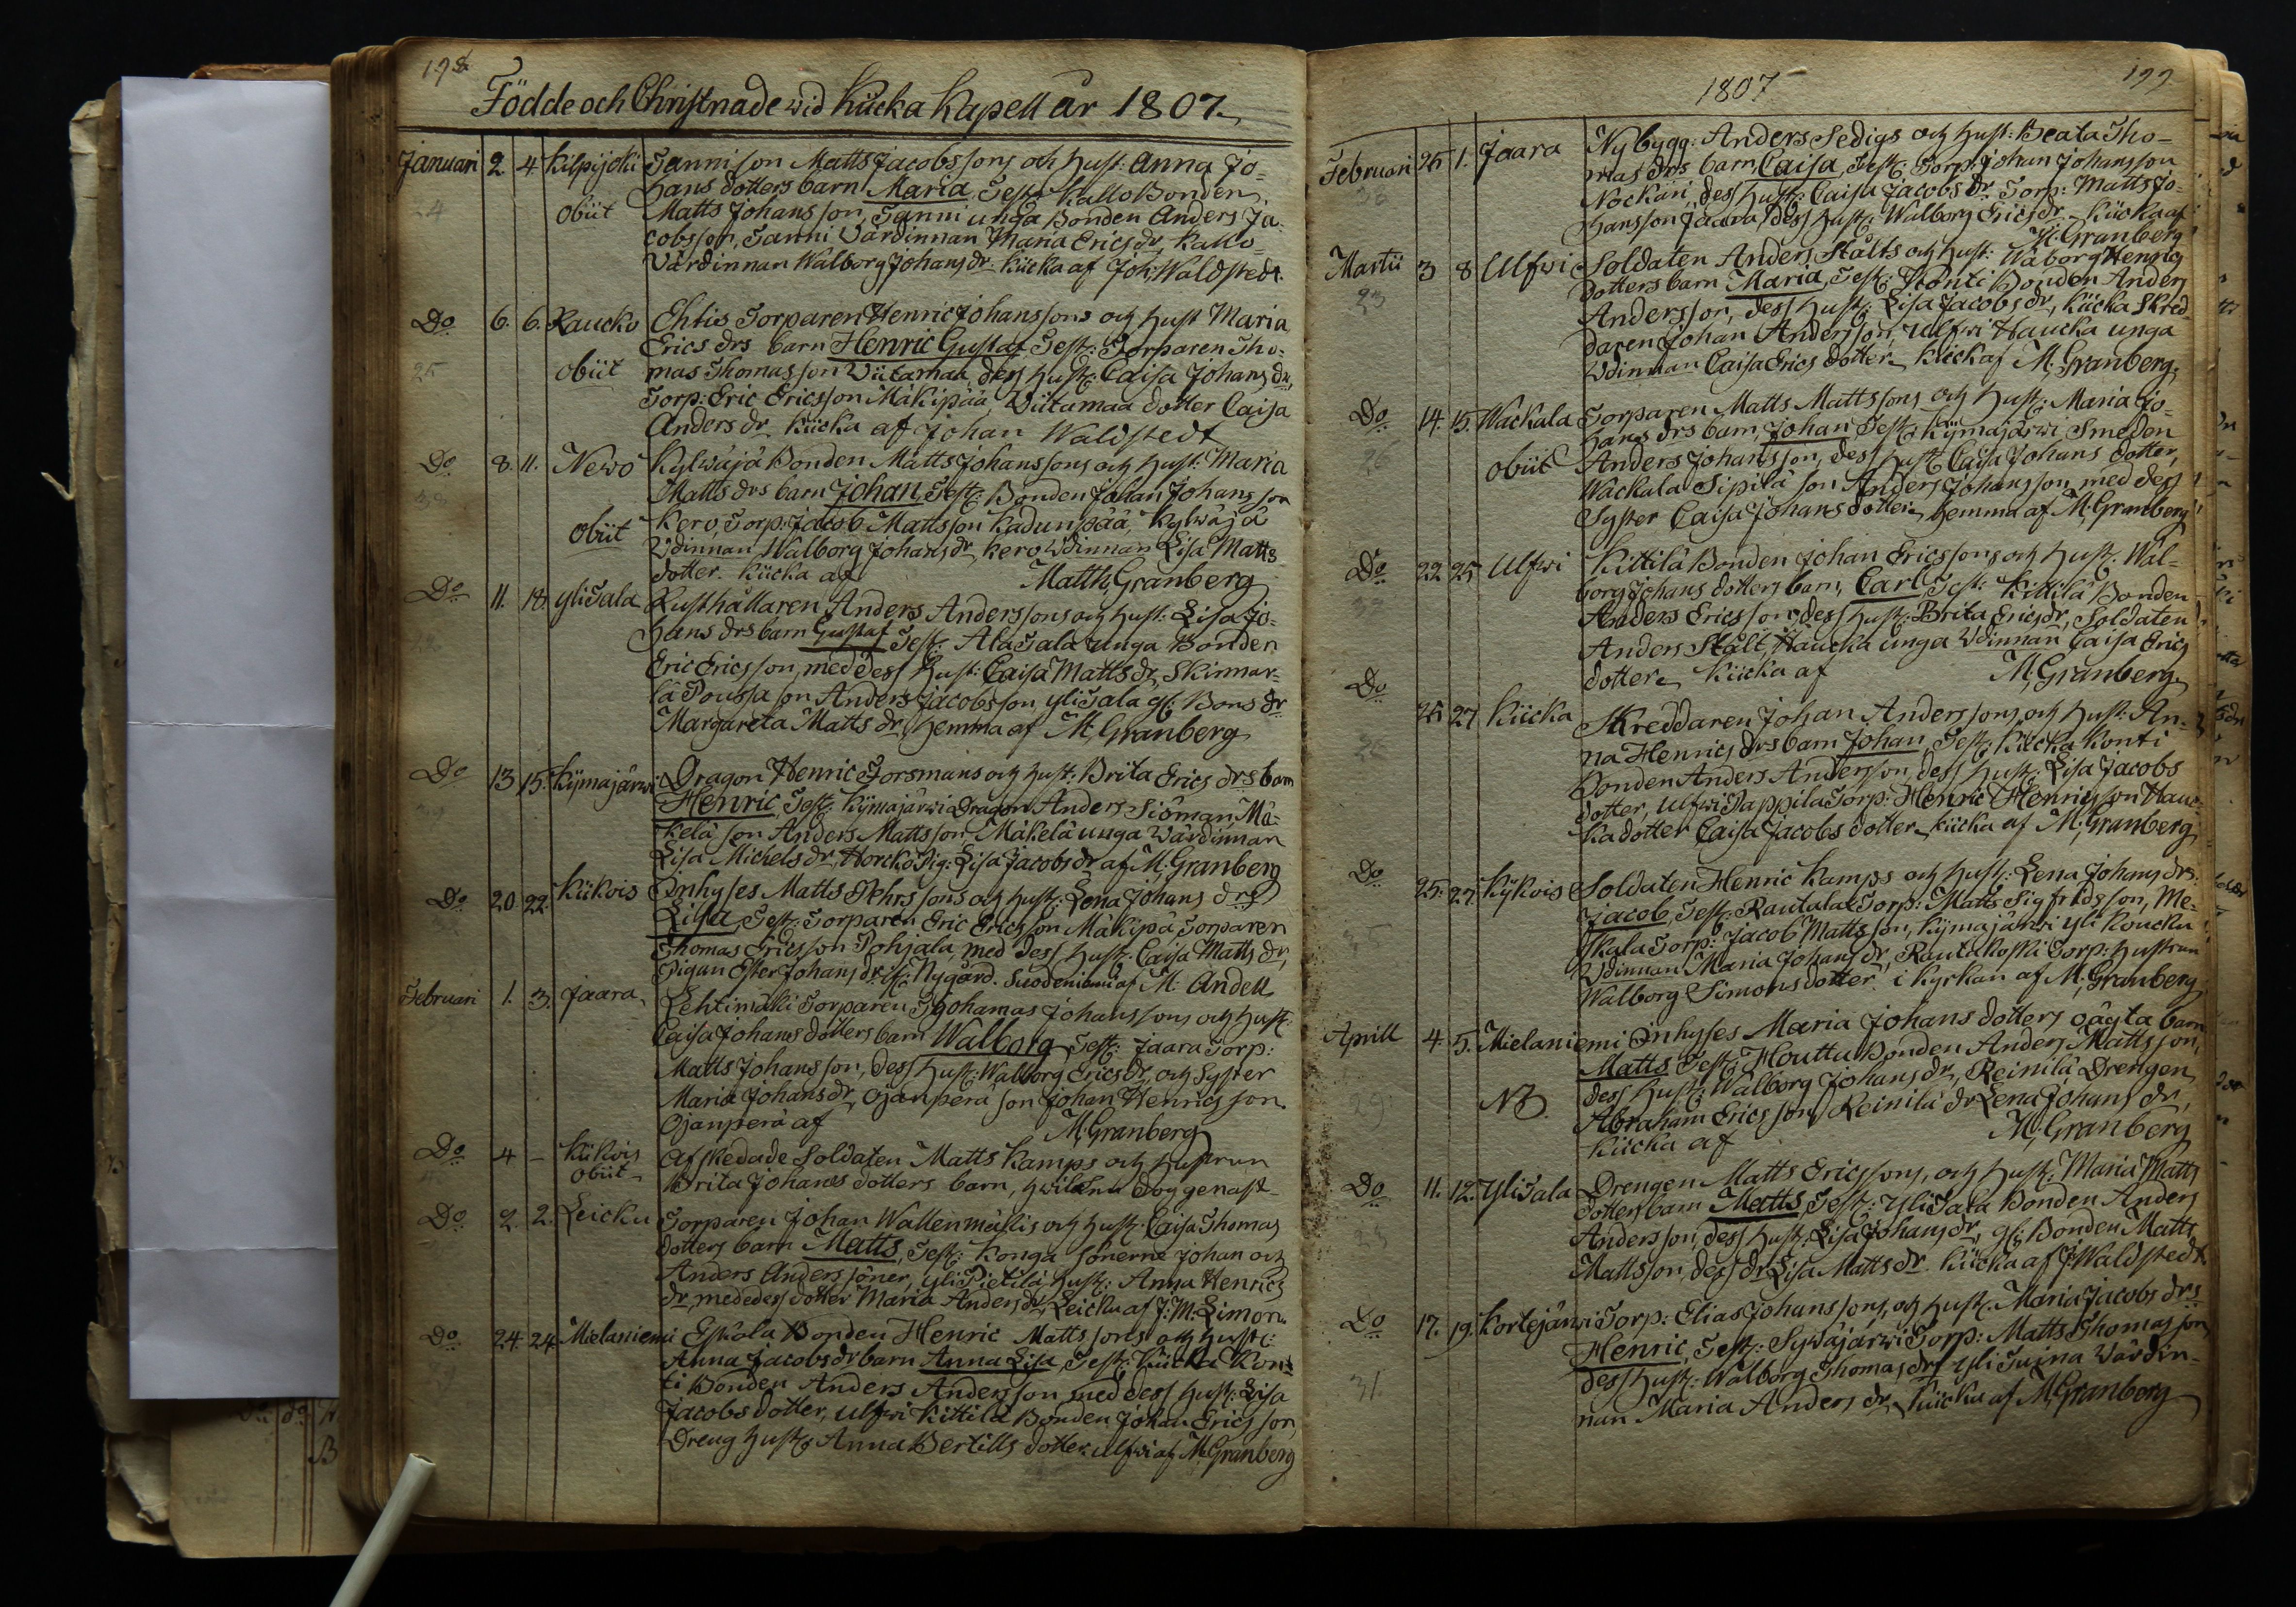 198
Födde och Christnade wid Kiicka Kapell år 1807.
Januari 2 4 Kilpijoki Sanni son Matts Jacobssons och Hust: Anna Jo-
hans dotters barn Maria, Test: Kallo Bonden
24 obiit Matts Johansson, Sanni unga Bonden Anders Ja-
cobsson, Sanni Värdinnan Maria Ericsdr, Kallo-
Värdinnan Walborg Johans dr Kiicka af Joh: Waldstedt.
Do 6. 6. Raucko Ehtis Torparen Henric Johanssons och Hust Maria
Erics drs barn Henric Gustaf Test: Torparen Tho-
25 obiit mas Thomasson Viitamaa, dess Hust: Caisa Johans dr,
Torp: Eric Ericsson Mäkipää, Viitamaa dotter Caisa
Anders dr Kiicka af Johan Waldstedt
Do 8. 11. Newo Kylwäjä Bonden Matts Johanssons och Hust: Maria
Matts drs barn Johan, Test: Bonden Johan Johansson
obiit Kero, Torp: Jacob Mattsson Kadunpää, Kylwäjä
Wdinnan Walborg Johans dr, Kero Wdinnan Lisa Matts
dotter. Kiicka af Matth: Granberg
Do 11. 18. Ylisala Rusthållaren Anders Anderssons och Hust: Lisa Jo-
hans drs barn Gustaf Test: Alasala unga Bonden
Eric Ericsson, med dess Hust: Caisa Matts dr, Skinnar-
lä Poussa son Anders Jacobsson, Ylisala gl: Bons dr
Margareta Matts dr, hemma af M: Granberg
Do 13 15. Kijmajärwi Dragon Henric Forsmans och Hust: Brita Erics drs barn
Henric, Test: Kijmajärwi Dragon Anders Siöman, Mä-
kelä son Anders Mattsson, Mäkelä unga Wärdinnan
Lisa Michels dr, Horcko Pig: Lisa Jacobs dr af M: Granberg
Do 20 22. Kiikois Inhyses Matts Pehrssons och Hust: Lena Johans drs
Lisa, Test: Torparen Eric Ericsson Mäkipä, Torparen
Thomas Ericsson Pohjala, med dess Hust: Caisa Matts dr,
Pigan Ester Johans dr Nygård. Suodeniemi af M: Andell
Februari 1. 3. Jaara Lehtimäki Torparen Thohamas Johanssons och Hust:
Caisa Johans dotters barn Walborg, Test: Jaara Torp:
Matts Johansson, dess Hust: Walborg Erics dr, och Syster
Maria Johans dr, Ojanperä son Johan Henricsson
Ojanperä af M: Granberg
Do 4 – Kiikois Afskedade Soldaten Matts Kamps och Hustrun
obiit Brita Johans dotters barn, hwilcken dog genast
Do 2 2. Leicku Torparen Johan Wallenmäkis och Hust: Caisa Thomas
dotters barn Matts, Test: Konga sönerne Johan och
Anders Anders söner, Yli Pietilä Hust: Anna Henrics
dr, med dess dotter Maria Anders dr, Leicku af J: M: Limon.
Do 24. 24. Mielaniemi Eskola Bonden Henric Mattssons och Hust:
Anna Jacobs dr barn Anna Lisa, Test: Kiicka Kon-
ti Bonden Anders Andersson, med dess Hust: Lisa
Jacobs dotter, Ulfwi Kittilä Bonden Johan Ericsson,
Dreng Hust: Anna Bertills dotter, Ulfwi af M: Granberg
1807 199
Februari 25 1. Jaara Nybygg: Anders Sedigs och Hust: Beata Tho-
mas drs barn, Caisa, Test: Torp: Johan Johansson
Nockäri, dess Hust: Caisa Jacobs dr Torp: Matts Jo-
hansson Jaara, dess Hust: Walborg Erics dr. Kiicka af
M: Granberg
Martii 3 8 Ulfwi Soldaten Anders Stålts och Hust: Wäborg Henrics
dotters barn Maria, Test: Konti Bonden Anders
Andersson, dess Hust: Lisa Jacobs dr, Kiicka Skred-
daren Johan Andersson, Ulfwi Haucka unga
Wdinnan Caisa Erics dotter Kiick af M: Granberg.
Do 14. 15. Wackala Torparen Matts Mattssons och Hust: Maria Jo-
hans drs barn, Johan Test: Kijmajärwi Smeden
26 obiit Anders Johansson, dess Hust: Caisa Johans dotter,
Wackala Sipilä son Anders Johansson, med dess
Syster Caisa Johans dotter, hemma af M: Granberg
Do 22 25 Ulfwi Kittilä Bonden Johan Ericssons och Hust: Wal-
borg Johans dotters barn, Carl, Test: Kittilä Bonden
Anders Ericsson, dess Hust: Brita Erics dr, Soldaten
Anders Stålt, Haucka unga Wdinnan Caisa Erics
dotter Kiicka af M: Granberg.
Do 25 27 Kiicka Skreddaren Johan Anderssons och Hust: An-
na Henrics drs barn Johan, Test: Kiicka Konti
Bonden Anders Andersson, dess Hust: Lisa Jacobs
dotter, Ulfwi Pappila Torp: Henric Henricsson Hauc-
ka dotter Caisa Jacobs dotter Kiicka af M: Granberg
Do 25. 27. Kijkois Soldaten Henric Kamps och Hust: Lena Johans drs:
Jacob, Test: Rautala Torp: Matts Sigfridsson, Me-
skala Torp: Jacob Mattsson, Kijmajärwi Yli Koucku
Wdinnan Maria Johans dr, Rautakoski Torp: hustrun
Walborg Simons dotter, i Kyrkan af M: Granberg
Aprill 4. 5. Mielaniemi Inhyses Maria Johans dotters oägta barn
Matts Test: Houttu Bonden Anders Mattsson,
dess Hust: Walborg Johans dr, Reinilä Drengen
NB. Abraham Ericsson, Reinilä dr Lena Johans dr,
Kiicka af M: Granberg
Do 11. 12. Ylisala Drengen Matts Ericssons, och Hust: Maria Matts
dotters barn Matts, Test: Ylisala Bonden Anders
Andersson, dess Hust: Lisa Johans dr, gl: Bonden Matts
Mattsson, dess dr Lisa Matts dr Kiicka af J: Waldstedt
Do 17. 19. Kortejärwi Torp: Elias Johanssons, och Hust: Maria Jacobs drs
Henric, Test: Sywäjärwi Torp: Matts Thomasson,
31. dess Hust: Walborg Thomas dr, Yli Tuina Värdin-
nan Maria Anders dr Kiicka af M: Granberg